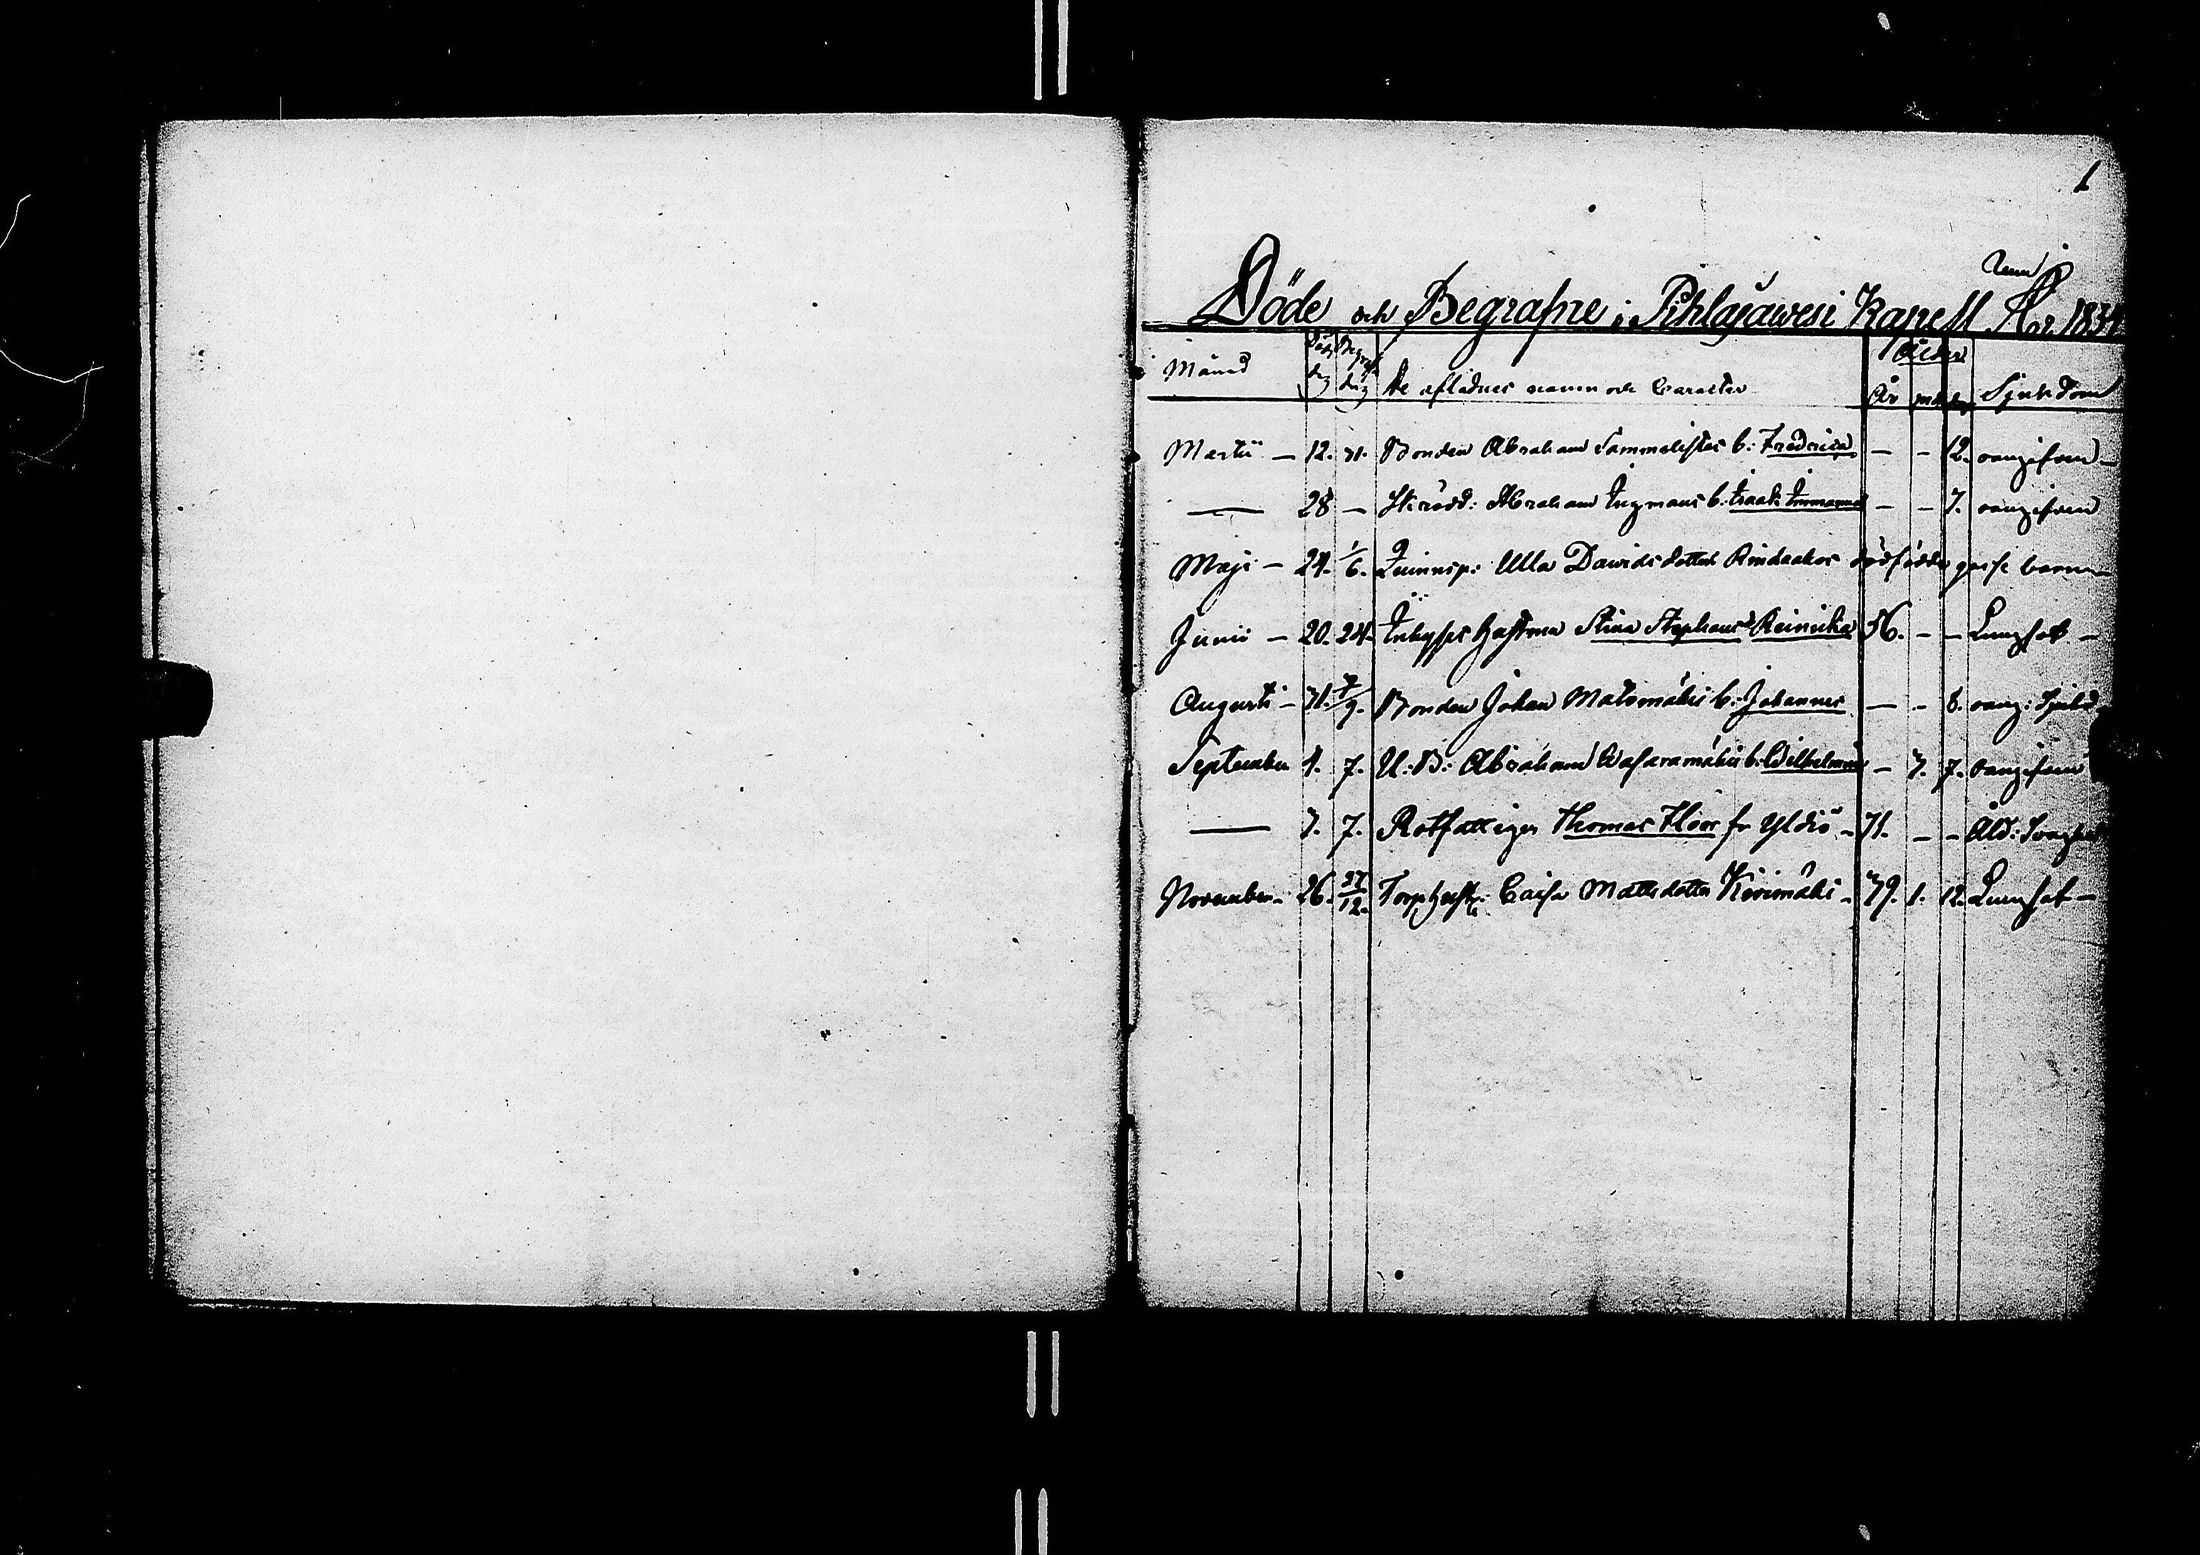 1
Döde och Begrafne i Pihlajawesi Kapell År 1834
Månad Död dag Begrafn dag De aflidnes namn och Caracter Ålder År mån dag Sjukdom
Martii — 12. 31. Bonden Abraham Sammalistos b: Fredrica — — 12. oangifven —
— 28 — Skrädd: Abraham Ingmans b: Isaak Immanuel — — 7. oangifven
Maji — 24. 1/6. Qvinnsp: Ulla Davidsdotter dödfödde gosse barn —
Junii — 20. 24. Inhyses hustrun Stina Stephansd Reinicka 56. — — Lungsot —
Augusti — 31. 7/9. Bonden Johan Matomäkis b: Johannes — — 8. oang: Sjukd
September 1. 7. U:B: Abraham Wasaramäkis b: Wilhelmina — 3. 7. oangifven
— 3. 7. Rotfattiger Thomas Floor fr Yldiö — 71. — — Åld: Svaghet
November — 26. 27/12. Torp hust: Caisa Mattsdotter Kivimäki — 79. 1. 12. Lungsot —